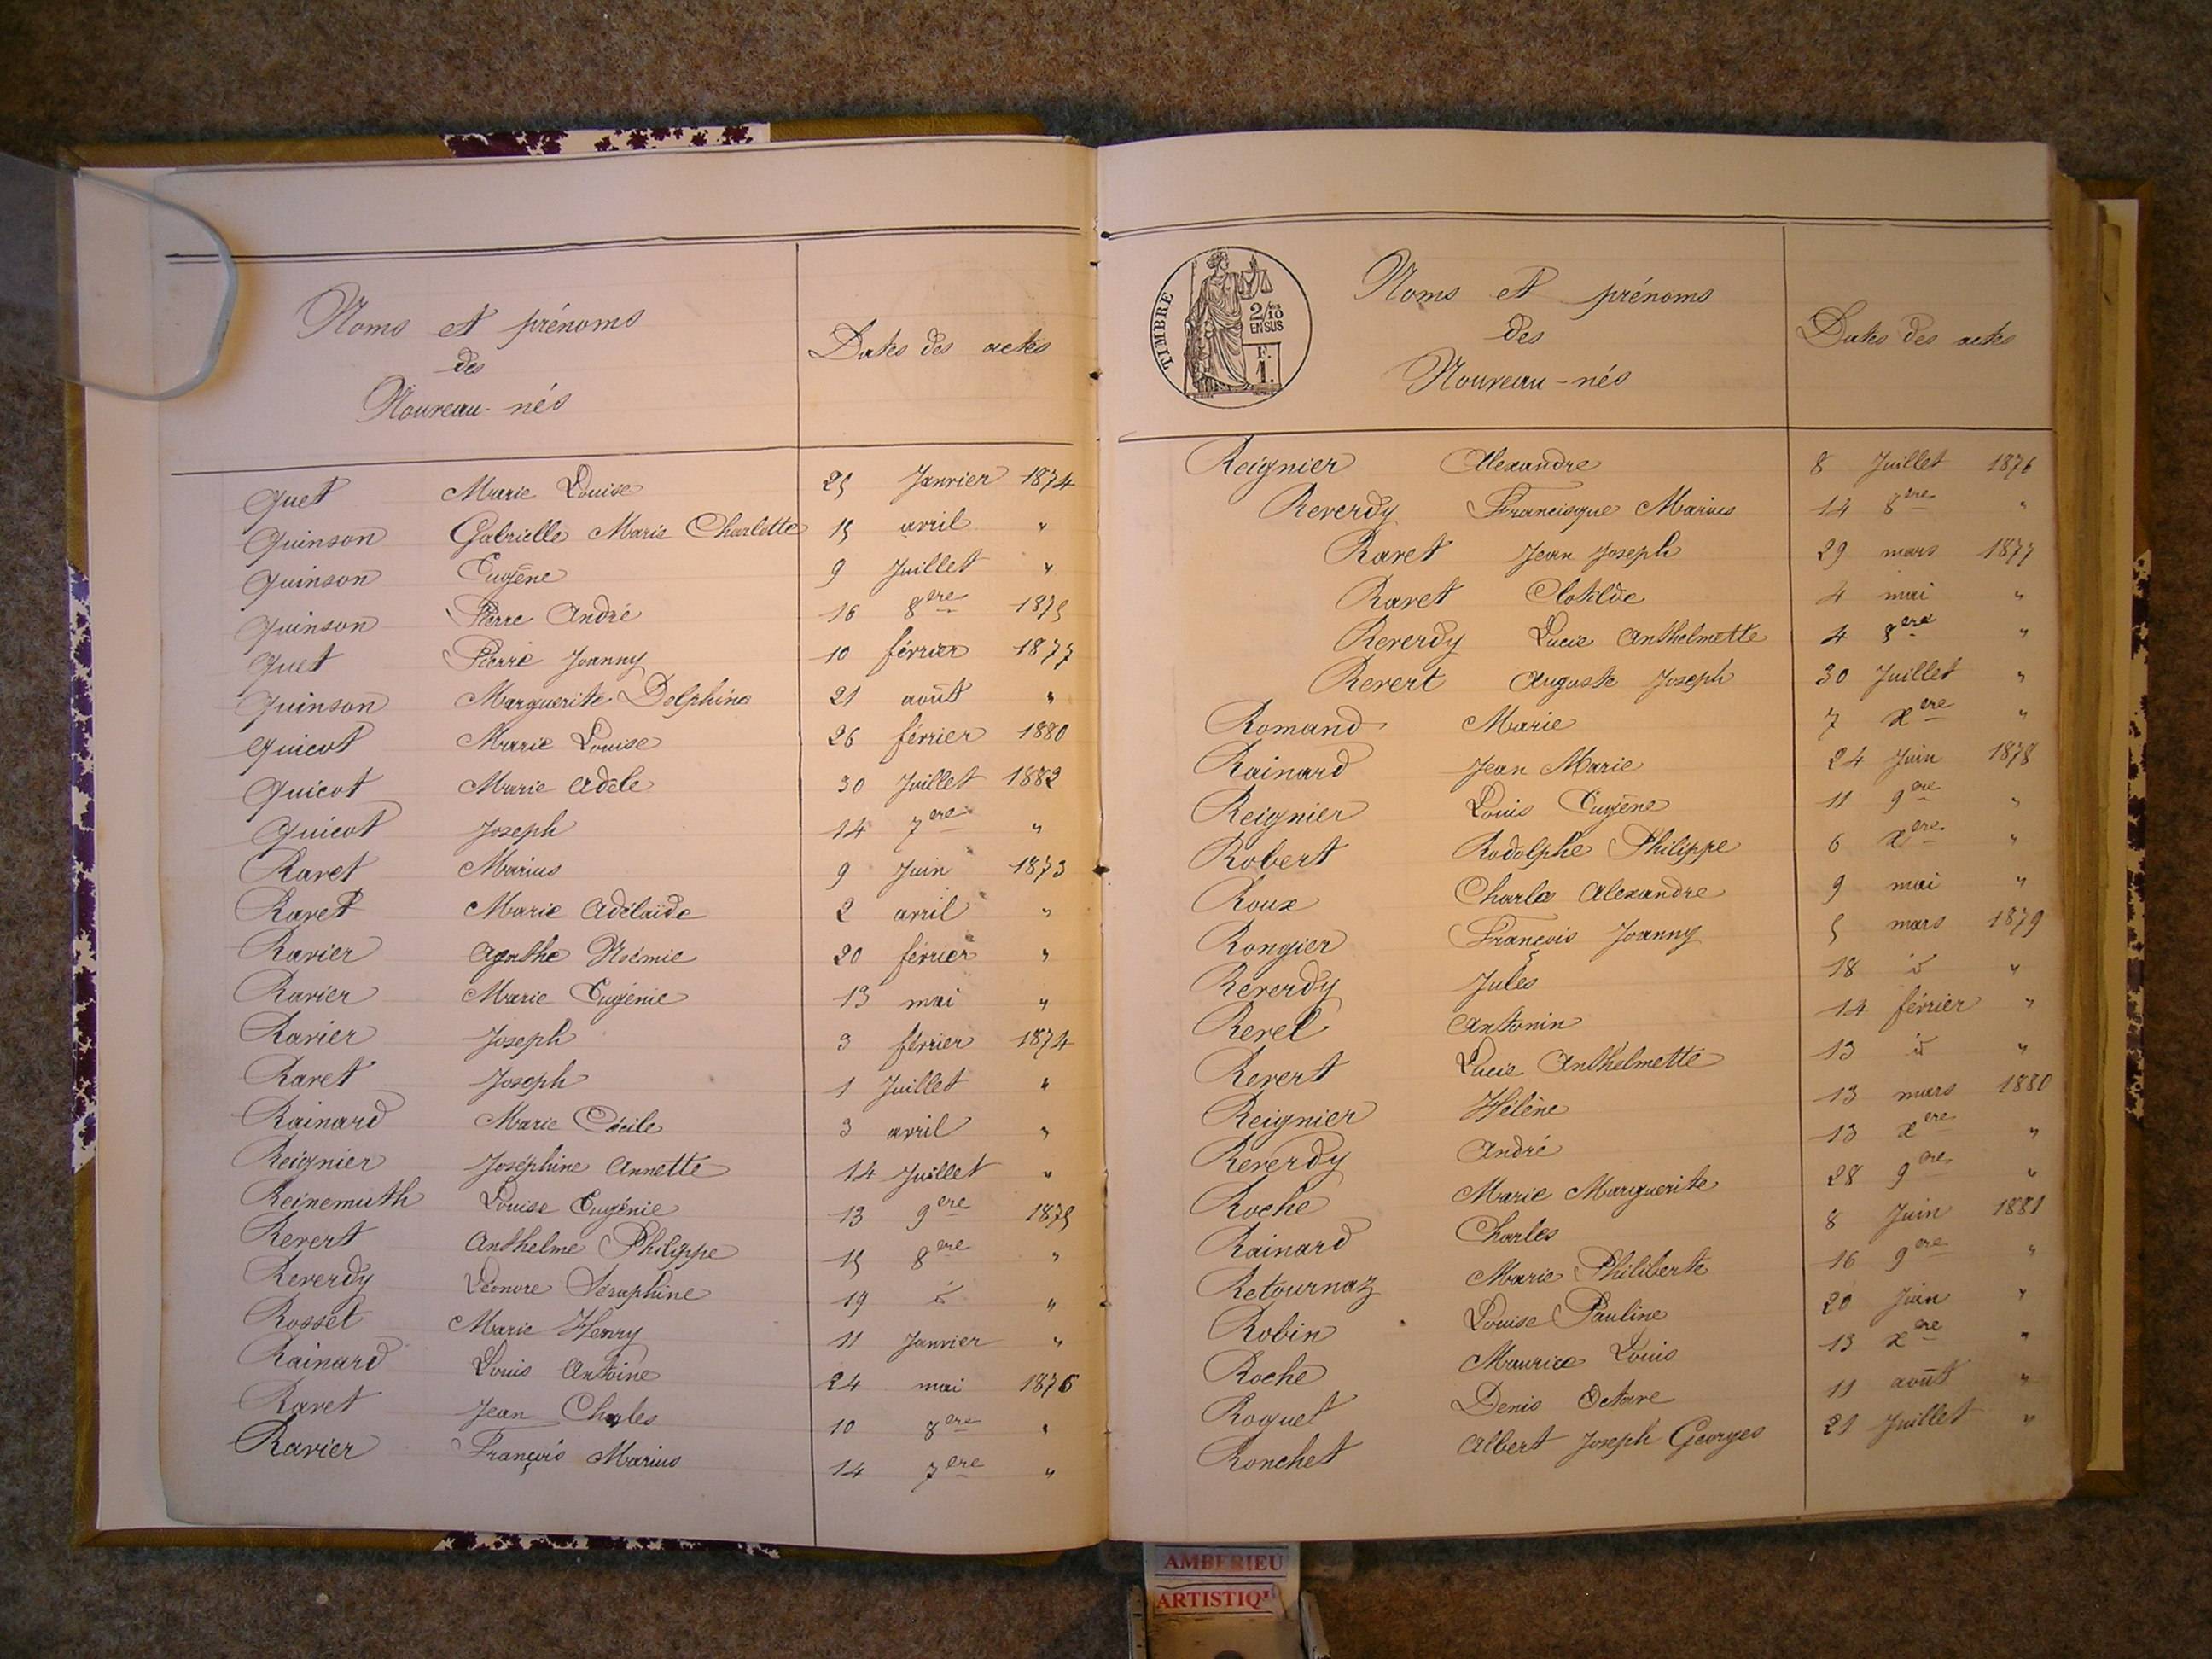 Noms et prénoms
des
Nouveau-nés
Dates des actes
Quet Marie Louise 25 Janvier 1874
Quinson Gabrielle Marie Charlotte 15 avril "
Quinson Eugène 9 Juillet "
Quinson Pierre André 16 8bre 1875
Quet Pierre Joanny 10 février 1877
Quinson Marguerite Delphine 21 août "
Quicot Marie Louise 26 février 1880
Quicot Marie Adèle 30 Juillet 1882
Quicot Joseph 14 7bre "
Ravet Marius 9 Juin 1873
Ravet Marie Adélaïde 2 avril "
Ravier Agathe Noémie 20 février "
Ravier Marie Eugénie 13 mai "
Ravier Joseph 3 février 1874
Ravet Joseph 1 Juillet "
Rainard Marie Cécile 3 avril "
Reignier Joséphine Annette 14 Juillet "
Reinemuth Louise Eugénie 13 9bre 1875
Revert Anthelme Philippe 15 8bre "
Reverdy Léonore Séraphine 19 d "
Rosset Marie Henry 11 Janvier "
Rainard Louis Antoine 24 mai 1876
Ravet Jean Charles 10 8bre "
Ravier François Marius 14 7bre "
TIMBRE
2/10 EN SUS
F. 1.
Noms et prénoms
des
Nouveau-nés
Dates des actes
Reignier Alexandre 8 Juillet 1876
Reverdy Francisque Marius 14 8bre "
Ravet Jean Joseph 29 mars 1877
Ravet Clotilde 4 mai "
Reverdy Lucie Anthelmette 4 8bre "
Revert Auguste Joseph 30 Juillet "
Romand Marie 7 xbre "
Rainard Jean Marie 24 Juin 1878
Reignier Louis Eugène 11 9bre "
Robert Rodolphe Philippe 6 xbre "
Roux Charles Alexandre 9 mai "
Rongier François Joanny 5 mars 1879
Reverdy Jules 18 d "
Revel Antonin 14 février "
Revert Lucie Anthelmette 13 d "
Reignier Hélène 13 mars 1880
Reverdy André 13 xbre "
Roche Marie Marguerite 28 9bre "
Rainard Charles 8 Juin 1881
Retournaz Marie Philiberte 16 9bre "
Robin Louise Pauline 20 Juin "
Roche Maurice Louis 13 xbre "
Roguet Denis Octave 11 août "
Ronchet Albert Joseph Georges 21 Juillet "
AMBERIEU
ARTISTIQU